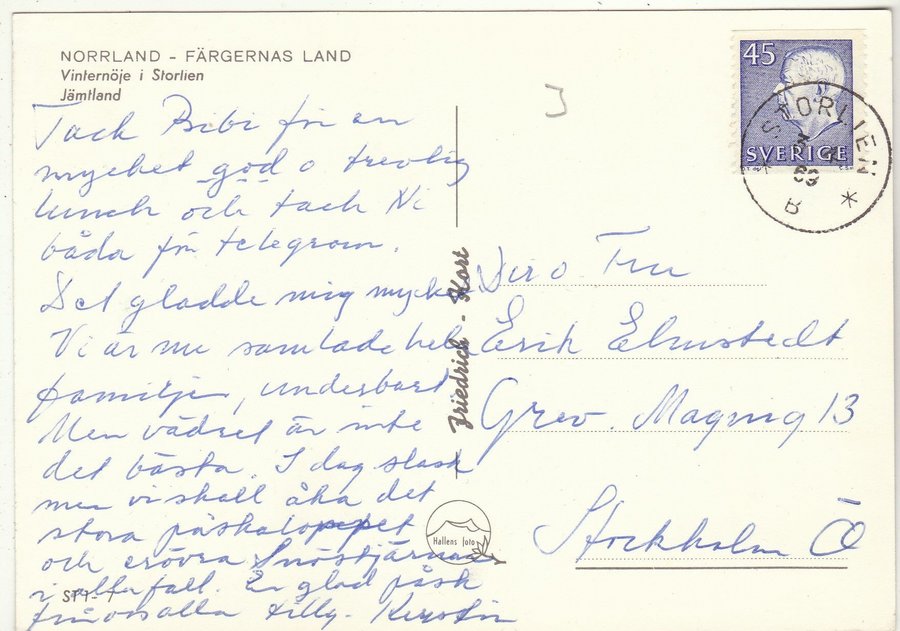 NORRLAND - FÄRGERNAS LAND
Vinternöje i Storlien
Jämtland
Tack Bibi för en
mycket god o trevlig
lunch och tack Ni
båda för telegram.
Det gladde mig mycket
Vi är nu samlade hela
familjen, underbart
Men vädret är inte
det bästa. I dag slask
men vi skall åka det
stora påskaloppet
och erövra Snöstjärnan
i alla fall. En glad påsk
från oss alla Kerstin
ST1-1
J
Friedrich - Kort
Hallens foto
45
SVERIGE
STORLIEN
B
Dir o. Fru
Erik Elmstedt
Grev. Magnig 13
Stockholm Ö